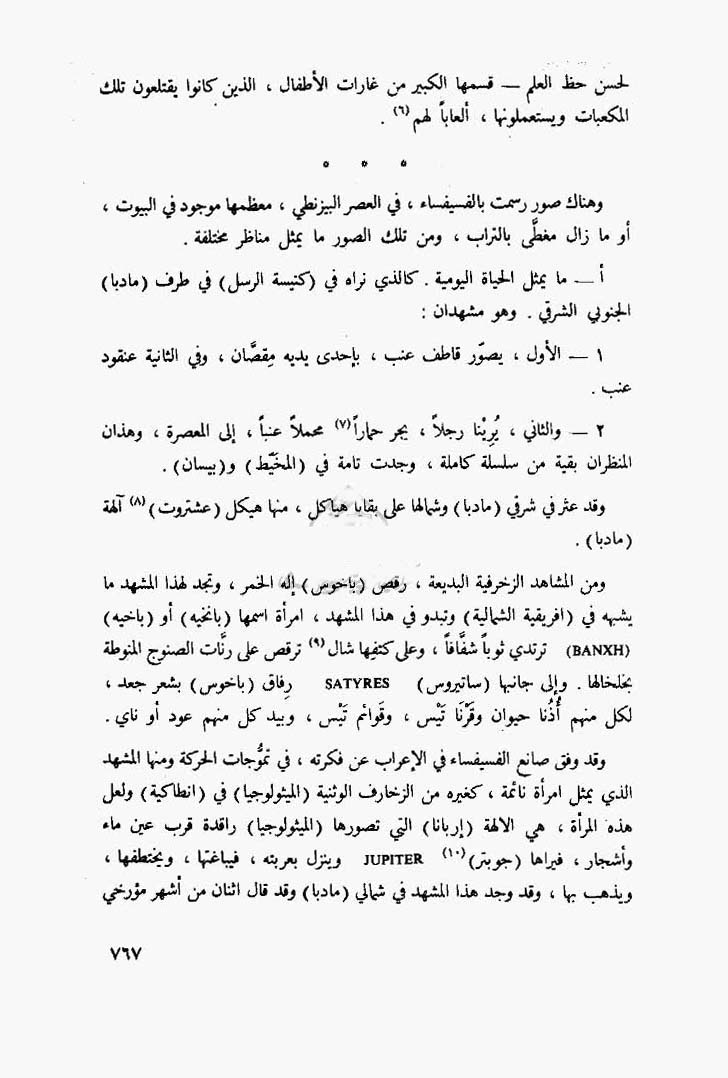 لحسن حظ العلم — قسمها الكبير من غارات الأطفال ، الذين كانوا يقتلعون تلك
المكعبات ويستعملونها ، ألعاباً لهم (٦) .
* * *
وهناك صور رسمت بالفسيفساء ، في العصر البيزنطي ، معظمها موجود في البيوت ،
أو ما زال مغطَّى بالتراب ، ومن تلك الصور ما يمثل مناظر مختلفة .
أ — ما يمثل الحياة اليومية . كالذي نراه في (كنيسة الرسل) في طرف (مادبا)
الجنوبي الشرقي . وهو مشهدان :
١ — الأول ، يصوّر قاطف عنب ، بإحدى يديه مِقصَّان ، وفي الثانية عنقود
عنب .
٢ — والثاني ، يُرِيْنا رجلاً ، يجر حماراً (٧) محملاً عنباً ، إلى المعصرة ، وهذان
المنظران بقية من سلسلة كاملة ، وجدت تامة في (المخَيّط) و(بيسان) .
وقد عثر في شرقي (مادبا) وشمالها على بقايا هياكل ، منها هيكل (عشتروت) (٨) آلهة
(مادبا) .
ومن المشاهد الزخرفية البديعة ، رقص (باخوس) إله الخمر ، وتجد لهذا المشهد ما
يشبهه في (افريقية الشمالية) وتبدو في هذا المشهد ، امرأة اسمها (بانخيه) أو (باخيه)
(BANXH) ترتدي ثوباً شفَّافاً ، وعلى كتفها شال (٩) ترقص على رنَّات الصنوج المنوطة
بخلخالها . وإلى جانبها (ساتيروس) SATYRES رِفاق (باخوس) بشعر جعد ،
لكل منهم أُذُنا حيوان وقَرْنَا تَيْس ، وقَوائم تَيْس ، وبيد كل منهم عود أو ناي .
وقد وفق صانع الفسيفساء في الإعراب عن فكرته ، في تموُّجات الحركة ومنها المشهد
الذي يمثل امرأة نائمة ، كغيره من الزخارف الوثنية (الميثولوجيا) في (انطاكية) ولعل
هذه المرأة ، هي الالهة (إربانا) التي تصورها (الميثولوجيا) راقدة قرب عين ماء
وأشجار ، فيراها (جوبتر) (١٠) JUPITER وينزل بعربته ، فيباغتها ، ويختطفها ،
ويذهب بها ، وقد وجد هذا المشهد في شمالي (مادبا) وقد قال اثنان من أشهر مؤرخي
٧٦٧